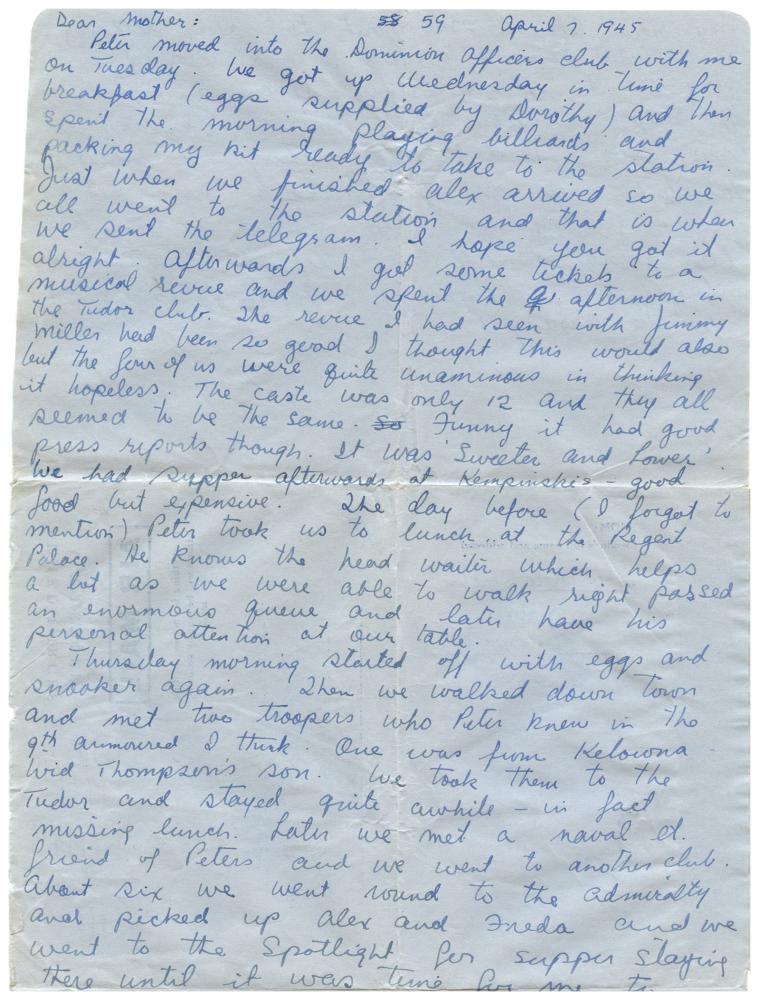 Dear Mother: 58 59 April 7. 1945
Peter moved into the Dominion Officers club with me
on Tuesday. We got up Wednesday in time for
breakfast (eggs supplied by Dorothy) and then
spent the morning playing billiards and
packing my kit ready to take to the station.
Just when we finished alex arrived so we
all went to the station and that is when
we sent the telegram. I hope you got it
alright. Afterwards I got some tickets to a
musical revue and we spent the afternoon in
the Tudor club. The revue I had seen with Jimmy
Miller had been so good I thought this would also
but the four of us were quite unaminous in thinking
it hopeless. The caste was only 12 and they all
seemed to be the same. So Funny it had good
press reports though. It was 'Sweeter and Lower'.
We had supper afterwards at Kempinskis - good
food but expensive. The day before (I forgot to
mention) Peter took us to lunch at the Regent
Palace. He knows the head waiter which helps
a lot as we were able to walk right passed
an enormous queue and later have his
personal attention at our table.
Thursday morning started off with eggs and
snooker again. Then we walked down town
and met two troopers who Peter knew in the
9th armoured I think. One was from Kelowna
Wid Thompson's son. We took them to the
Tudor and stayed quite awhile - in fact
missing lunch. Later we met a naval Lt.
friend of Peters and we went to another club.
About six we went round to the admiralty
and picked up Alex and Freda and we
went to the Spotlight for supper staying
there until it was time for me to